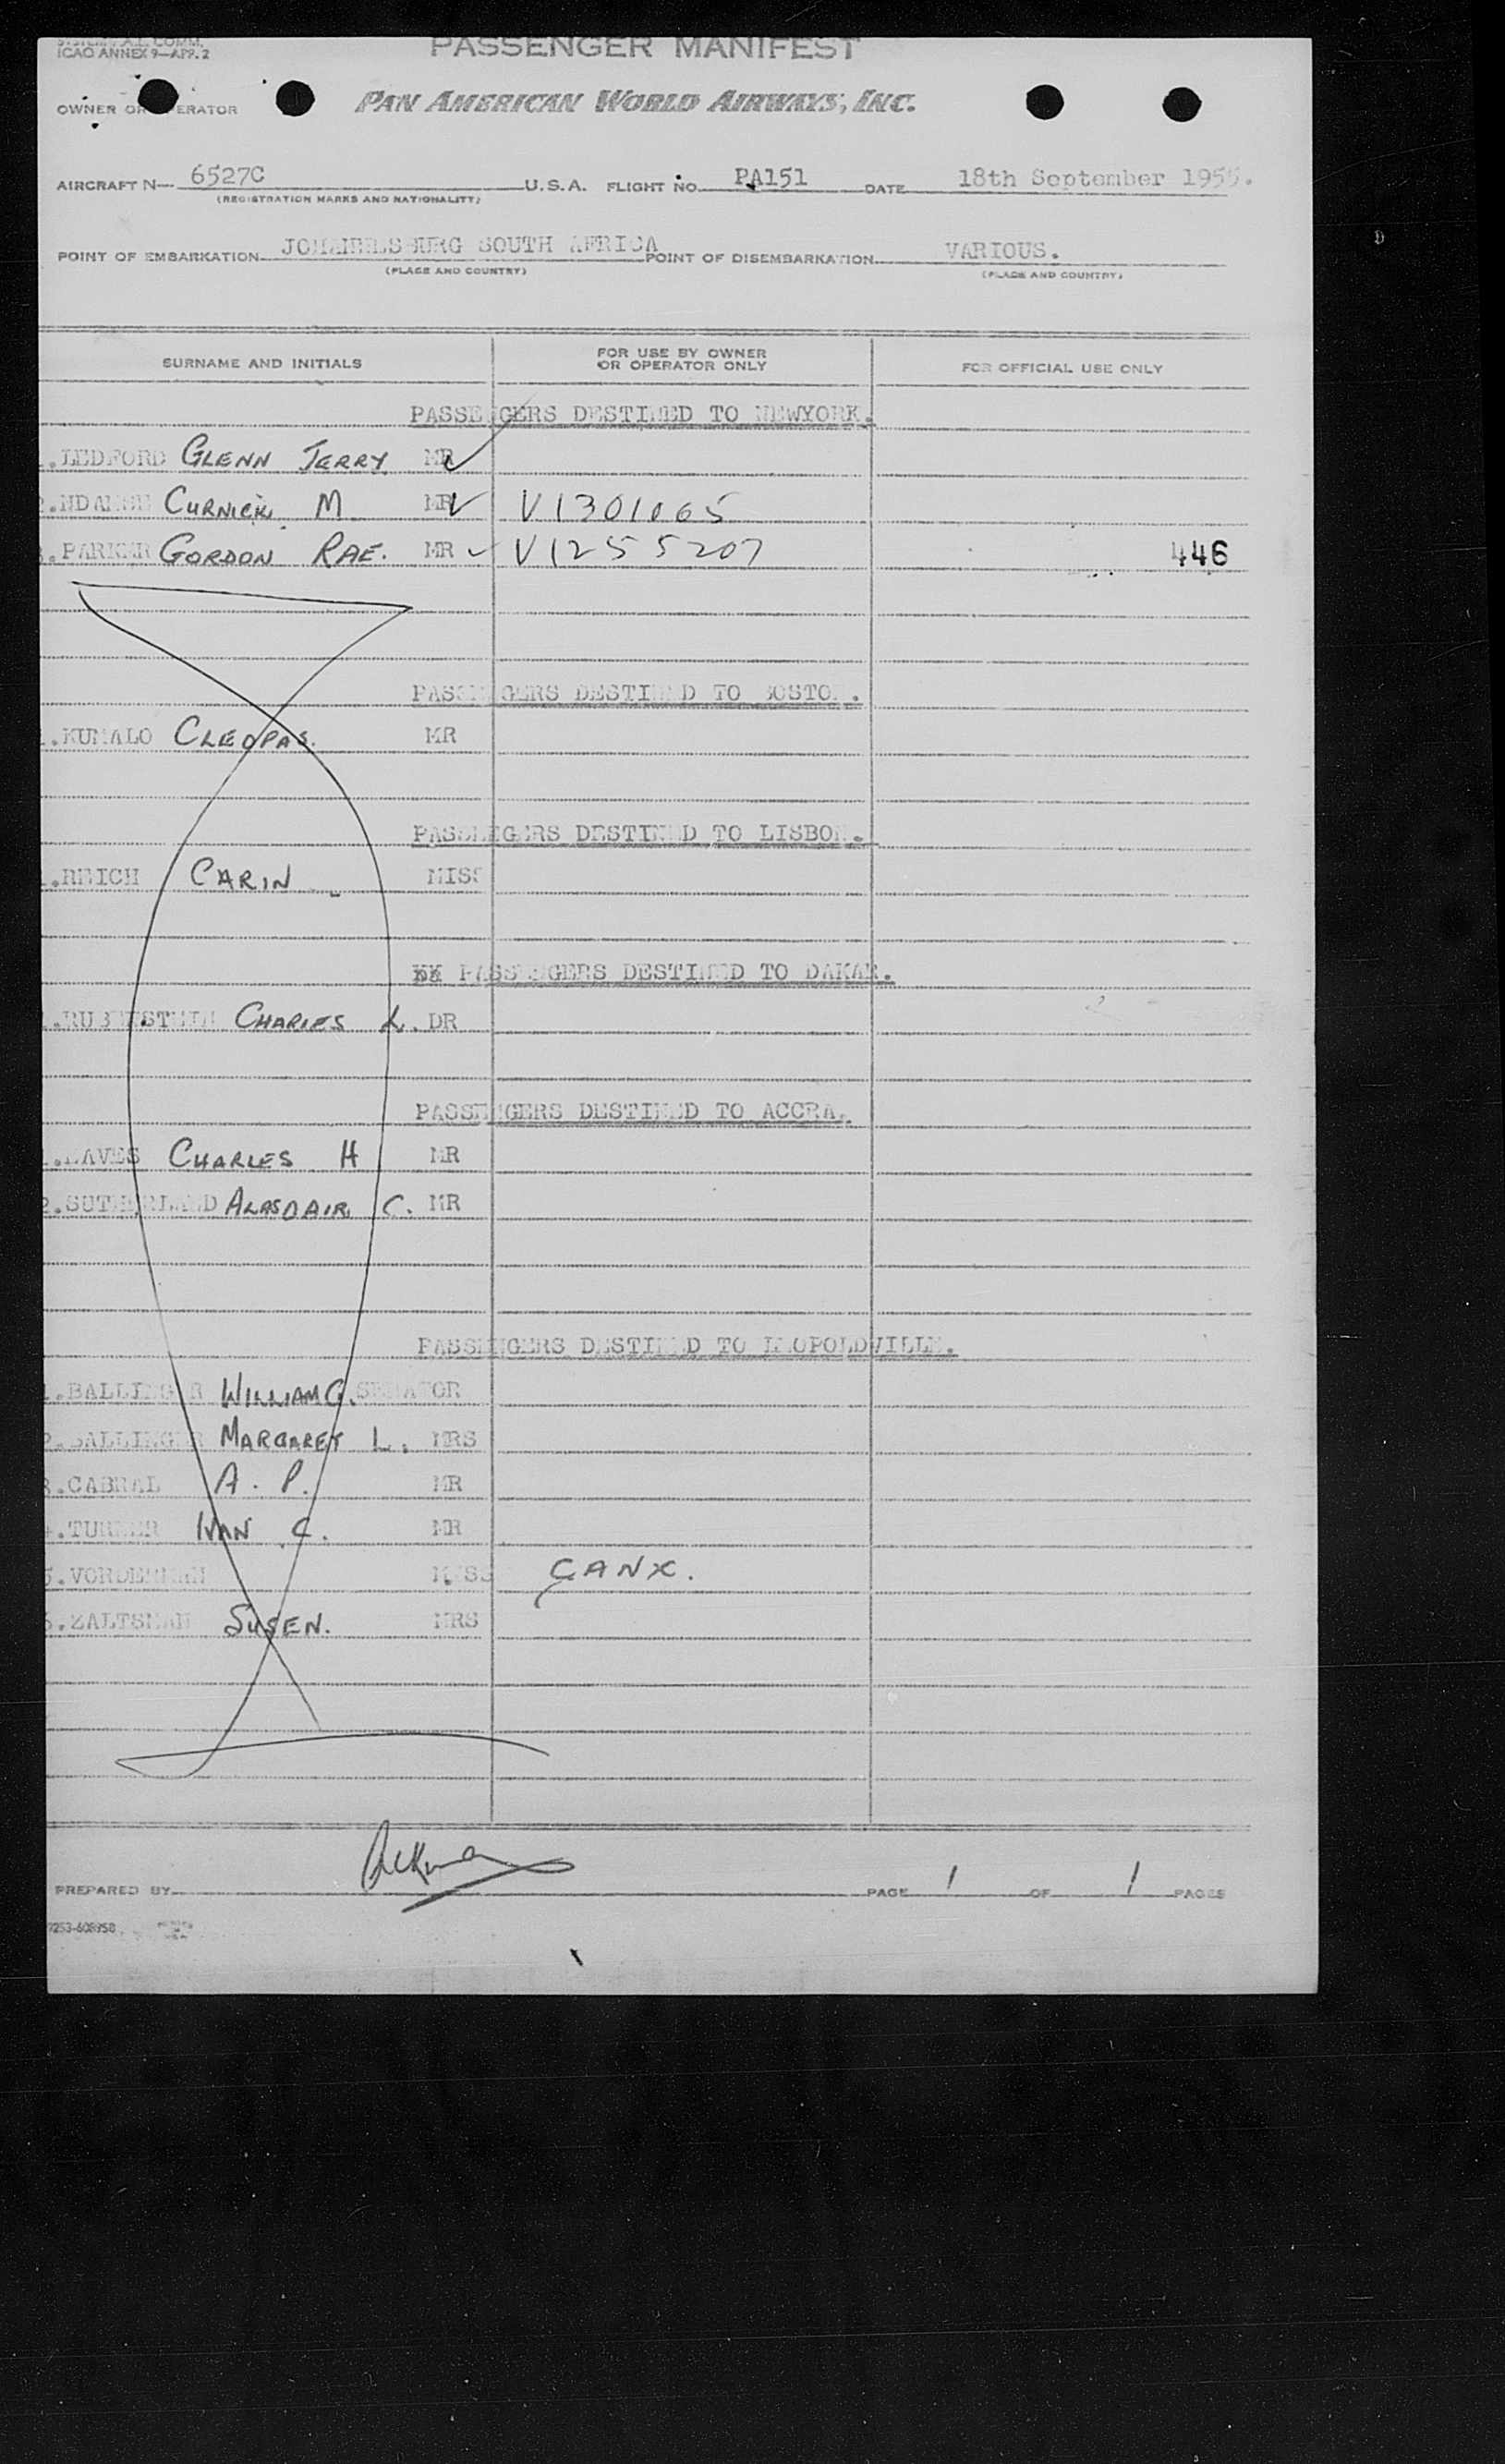 ICAO ANNEX 9—APP. 2
PASSENGER MANIFEST
OWNER OR OPERATOR PAN AMERICAN WORLD AIRWAYS, INC.
AIRCRAFT N— 6527C U.S.A. FLIGHT NO. PA151 DATE 18th September 1955.
(REGISTRATION MARKS AND NATIONALITY)
POINT OF EMBARKATION JOHANNESBURG SOUTH AFRICA POINT OF DISEMBARKATION VARIOUS.
(PLACE AND COUNTRY) (PLACE AND COUNTRY)
SURNAME AND INITIALS FOR USE BY OWNER OR OPERATOR ONLY FOR OFFICIAL USE ONLY
PASSENGERS DESTINED TO NEWYORK.
.LEDFORD GLENN JERRY MR
CURNICK M MR V1301065
.PARKER GORDON RAE. MR V1255207 446
PASSENGERS DESTINED TO BOSTON.
.KUMALO CLEOPAS. MR
PASSENGERS DESTINED TO LISBON.
.REICH CARIN MISS
PASSENGERS DESTINED TO DAKAR.
.RUBENSTEIN CHARLES L. DR
PASSENGERS DESTINED TO ACCRA.
CHARLES H MR
2.SUTHERLAND ALASDAIR C. MR
PASSENGERS DESTINED TO LEOPOLDVILLE.
.BALLINGER WILLIAM G. SENATOR
2.BALLINGER MARGARET L. MRS
.CABRAL A. P. MR
.TURNER IVAN C. MR
5.VORDERMAN MISS CANX.
6.ZALTSMAN SUSEN. MRS
PREPARED BY PAGE 1 OF 1 PAGES